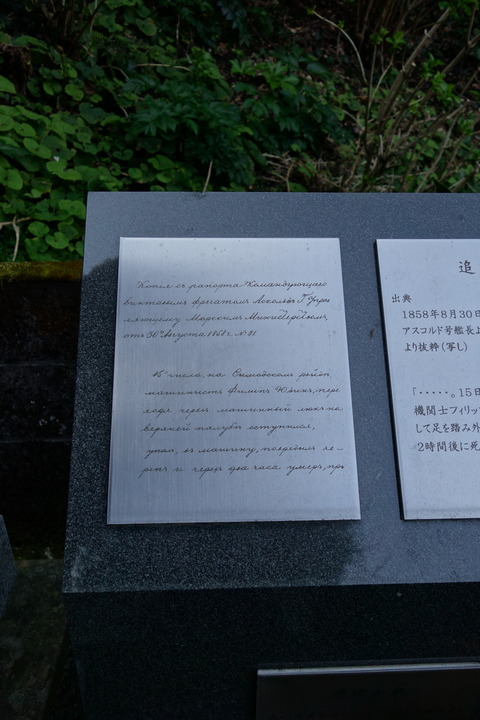 Копия съ рапорта Командующаго
винтовымъ фрегатомъ Аскольдъ
Морскимъ Министерствомъ,
отъ 30го Августа 1858 г. №
15 числа, на Симодскомъ рейдѣ,
машинистъ Филипъ Юдинъ, пере
ходя черезъ машинный люкъ на
верхней палубѣ оступился,
упалъ въ машину, повредилъ че-
репъ и черезъ два часа умеръ, при
追
出典
1858年8月30日
アスコルド号艦長よ
より抜粋(写し)
「・・・・・。15日
機関士フィリッ
して足を踏み外
2時間後に死